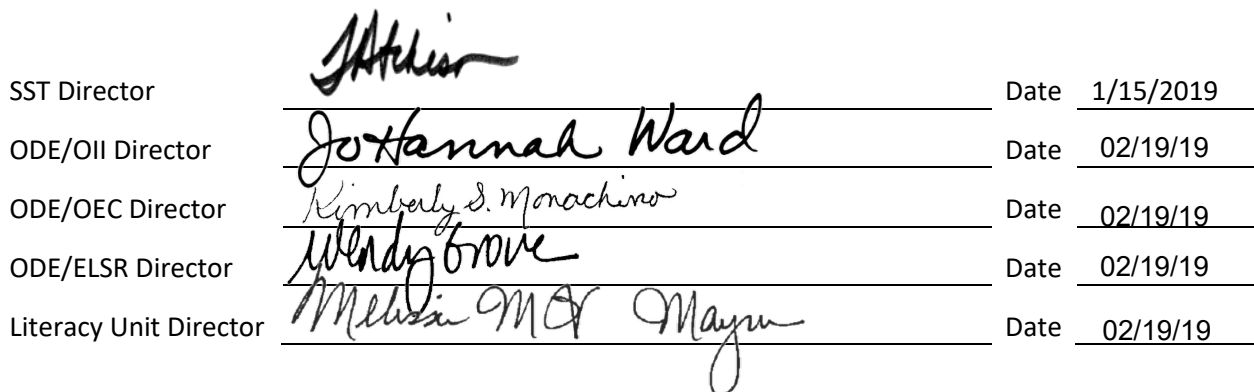 SST Director Date 1/15/2019
ODE/OII Director JoHannah Ward Date 02/19/19
ODE/OEC Director Kimberly S. Monachino Date 02/19/19
ODE/ELSR Director Wendy Grove Date 02/19/19
Literacy Unit Director Melissa Date 02/19/19